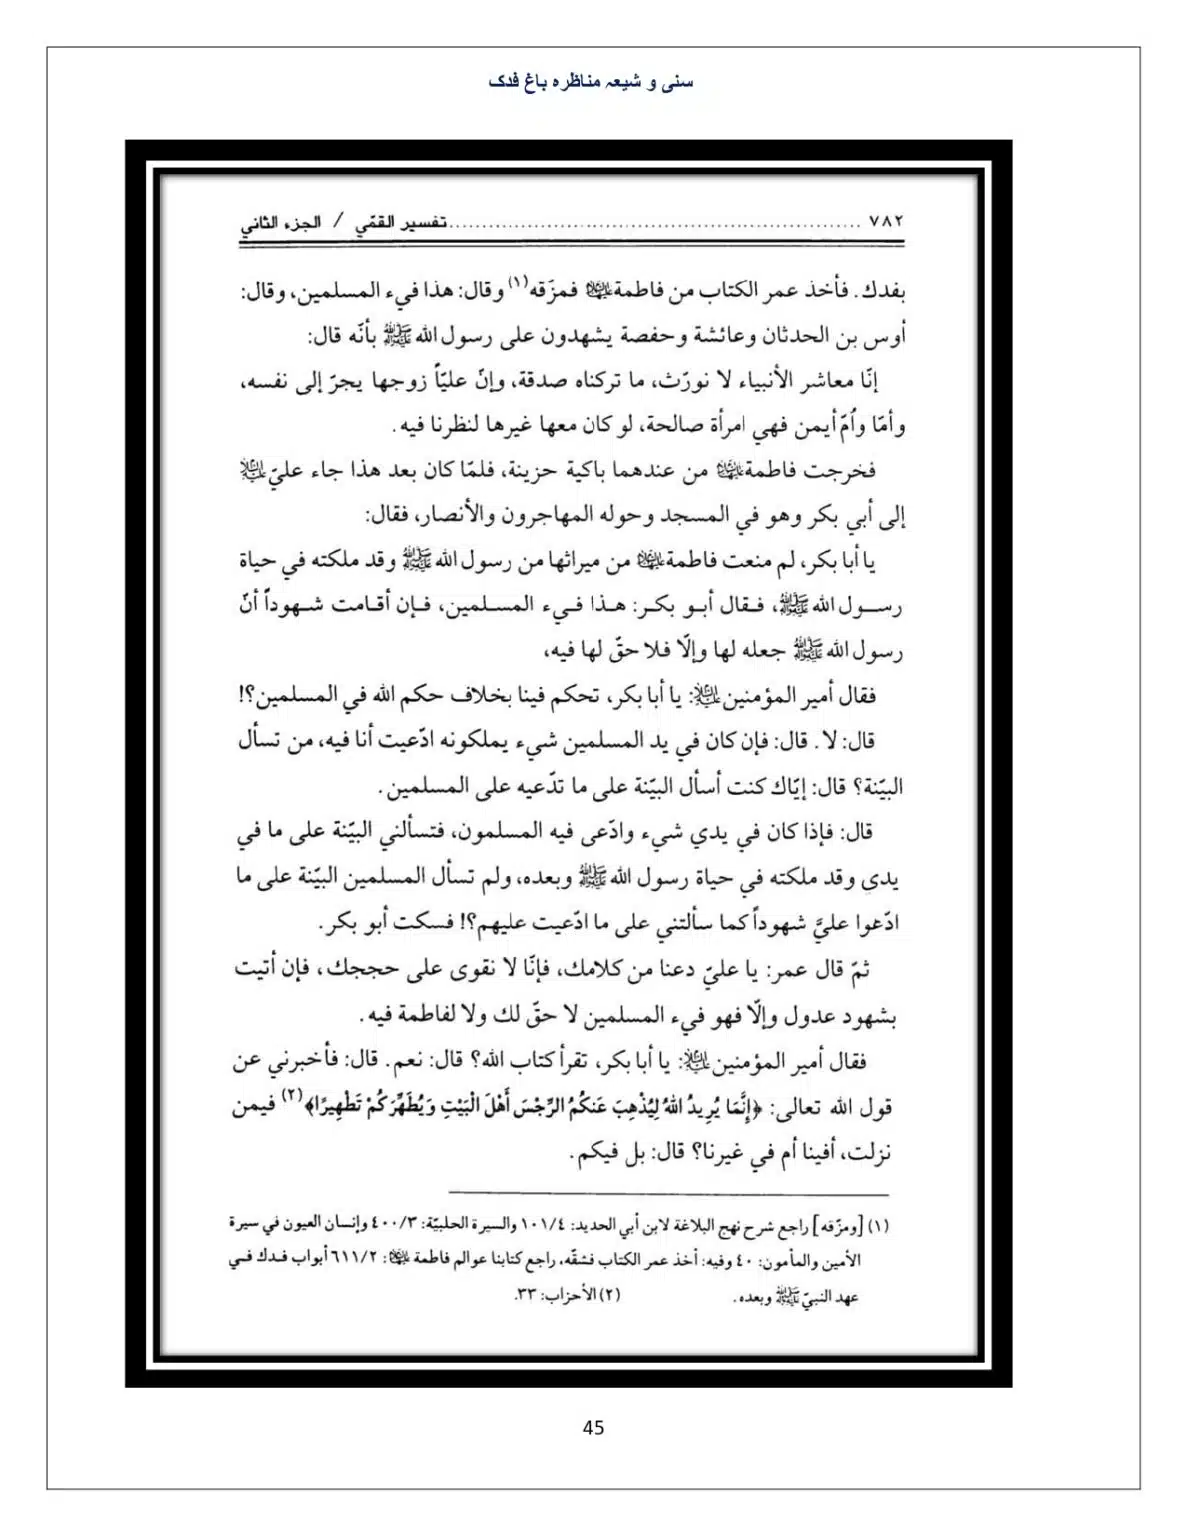 سنی و شیعہ مناظرہ باغ فدک
٧٨٢ ................................................................ تفسير القمّي / الجزء الثاني
بفدك. فأخذ عمر الكتاب من فاطمة عليها السلام فمزّقه(١) وقال: هذا فيء المسلمين، وقال:
أوس بن الحدثان وعائشة وحفصة يشهدون على رسول الله ﷺ بأنّه قال:
إنّا معاشر الأنبياء لا نورّث، ما تركناه صدقة، وإنّ عليّاً زوجها يجرّ إلى نفسه،
وأمّا وأُمّ أيمن فهي امرأة صالحة، لو كان معها غيرها لنظرنا فيه.
فخرجت فاطمة عليها السلام من عندهما باكية حزينة، فلمّا كان بعد هذا جاء عليّ عليه السلام
إلى أبي بكر وهو في المسجد وحوله المهاجرون والأنصار، فقال:
يا أبا بكر، لم منعت فاطمة عليها السلام من ميراثها من رسول الله ﷺ وقد ملكته في حياة
رسول الله ﷺ، فقال أبو بكر: هذا فيء المسلمين، فإن أقامت شهوداً أنّ
رسول الله ﷺ جعله لها وإلّا فلا حقّ لها فيه،
فقال أمير المؤمنين عليه السلام: يا أبا بكر، تحكم فينا بخلاف حكم الله في المسلمين؟!
قال: لا. قال: فإن كان في يد المسلمين شيء يملكونه ادّعيت أنا فيه، من تسأل
البيّنة؟ قال: إيّاك كنت أسأل البيّنة على ما تدّعيه على المسلمين.
قال: فإذا كان في يدي شيء وادّعى فيه المسلمون، فتسألني البيّنة على ما في
يدي وقد ملكته في حياة رسول الله ﷺ وبعده، ولم تسأل المسلمين البيّنة على ما
ادّعوا عليَّ شهوداً كما سألتني على ما ادّعيت عليهم؟! فسكت أبو بكر.
ثمّ قال عمر: يا عليّ دعنا من كلامك، فإنّا لا نقوى على حججك، فإن أتيت
بشهود عدول وإلّا فهو فيء المسلمين لا حقّ لك ولا لفاطمة فيه.
فقال أمير المؤمنين عليه السلام: يا أبا بكر، تقرأ كتاب الله؟ قال: نعم. قال: فأخبرني عن
قول الله تعالى: ﴿إِنَّمَا يُرِيدُ اللهُ لِيُذْهِبَ عَنكُمُ الرِّجْسَ أَهْلَ الْبَيْتِ وَيُطَهِّرَكُمْ تَطْهِيرًا﴾(٢) فيمن
نزلت، أفينا أم في غيرنا؟ قال: بل فيكم.
(١) [ومزّقه] راجع شرح نهج البلاغة لابن أبي الحديد: ١٠١/٤ والسيرة الحلبيّة: ٤٠٠/٣ وإنسان العيون في سيرة
الأمين والمأمون: ٤٠ وفيه: أخذ عمر الكتاب فشقّه، راجع كتابنا عوالم فاطمة عليها السلام: ٦١١/٢ أبواب فدك في
عهد النبيّ ﷺ وبعده. (٢) الأحزاب: ٣٣.
45